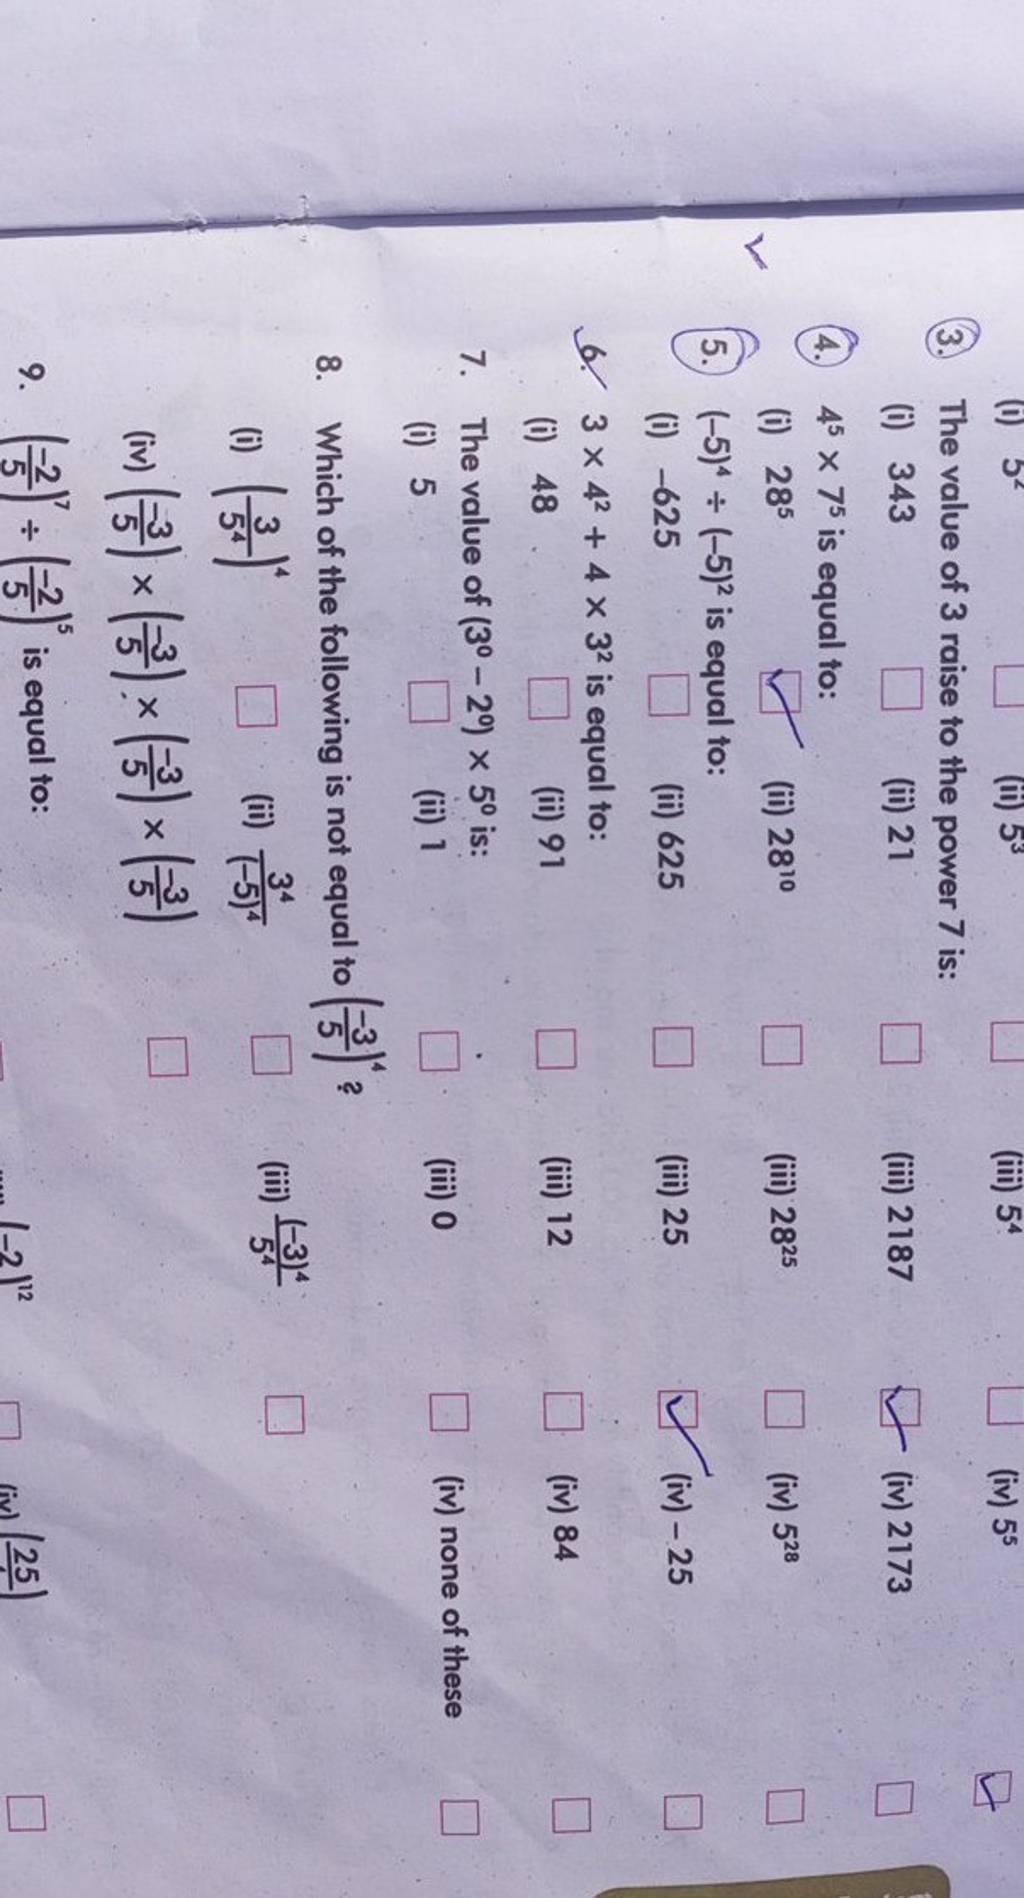 (i) 5² (ii) 5³ (iii) 5⁴ (iv) 5⁵
3. The value of 3 raise to the power 7 is:
(i) 343 (ii) 21 (iii) 2187 (iv) 2173
4. 4⁵ × 7⁵ is equal to:
(i) 28⁵ (ii) 28¹⁰ (iii) 28²⁵ (iv) 5²⁸
5. (–5)⁴ ÷ (–5)² is equal to:
(i) –625 (ii) 625 (iii) 25 (iv) – 25
6. 3 × 4² + 4 × 3² is equal to:
(i) 48 (ii) 91 (iii) 12 (iv) 84
7. The value of (3⁰ – 2⁰) × 5⁰ is:
(i) 5 (ii) 1 (iii) 0 (iv) none of these
8. Which of the following is not equal to (–3/5)⁴ ?
(i) (3/5⁴)⁴ (ii) 3⁴/(–5)⁴ (iii) (–3)⁴/5⁴
(iv) (–3/5) × (–3/5) × (–3/5) × (–3/5)
9. (–2/5)⁷ ÷ (–2/5)⁵ is equal to:
(–2)¹² (iv) (25